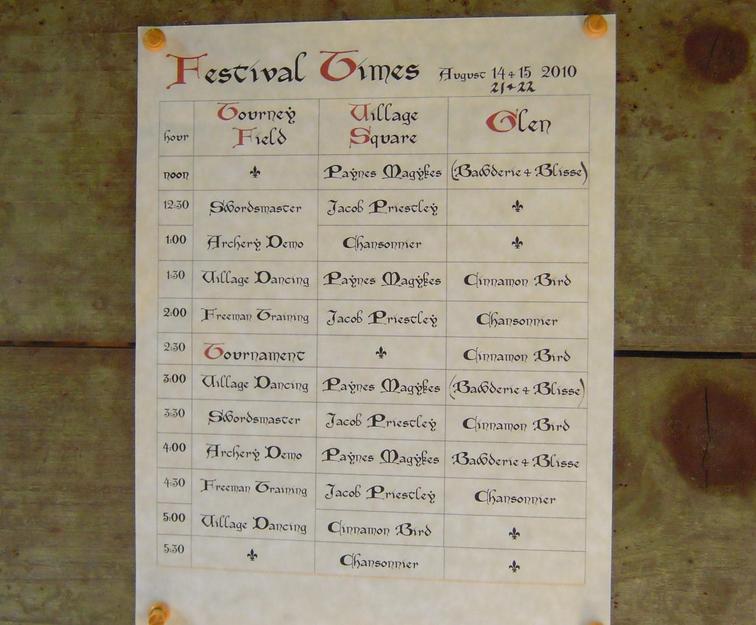 Festival Times August 14 + 15 2010
21 + 22
hour Tourney Field Village Square Glen
noon ⚜ Paynes Magykes (Bawderie + Blisse)
12:30 Swordsmaster Jacob Priestley ⚜
1:00 Archery Demo Chansonnier ⚜
1:30 Village Dancing Paynes Magykes Cinnamon Bird
2:00 Freeman Training Jacob Priestley Chansonnier
2:30 Tournament ⚜ Cinnamon Bird
3:00 Village Dancing Paynes Magykes (Bawderie + Blisse)
3:30 Swordsmaster Jacob Priestley Cinnamon Bird
4:00 Archery Demo Paynes Magykes Bawderie + Blisse
4:30 Freeman Training Jacob Priestley Chansonnier
5:00 Village Dancing Cinnamon Bird ⚜
5:30 ⚜ Chansonnier ⚜